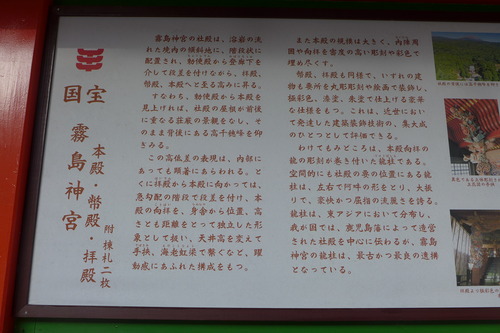 国宝
霧島神宮
本殿・幣殿・拝殿
附 棟札二枚
霧島神宮の社殿は、溶岩の流
れた境内の傾斜地に、階段状に
配置され、勅使殿から登廊下を
介して段差を付けながら、拝殿、
幣殿、本殿へと至る高みに昇る。
すなわち、勅使殿から本殿を
見上げれば、社殿の屋根が前後
に重なる荘厳の景観をなし、そ
のまま背後にある高千穂峰を仰
きみる。
この高低差の表現は、内部に
あっても顕著にあらわれる。と
くに拝殿から本殿に向かっては、
急勾配の階段で段差を付け、本
殿の向拝を、身舎から位置、高
さとも距離をとって独立した形
象として扱い、天井高を変えて
手挟、海老虹梁で繋ぐなど、躍
動感にあふれた構成をもつ。
また本殿の規模は大きく、内陣周
囲や向拝を密度の高い彫刻や彩色で
埋め尽くす。
幣殿、拝殿も同様で、いずれの建
物も要所を丸彫彫刻や絵画で装飾し、
極彩色、漆塗、朱塗で仕上げる豪華
な仕様をもつ。これは、近世におい
て発達した建築装飾技術の、集大成
のひとつとして評価できる。
わけてもみどころは、本殿向拝の
龍の彫刻が巻き付いた龍柱である。
空間的にも社殿の要の位置にある龍
柱は、左右で阿吽の形をとり、大振
りで、豪快かつ屈指の流麗さを誇る。
龍柱は、東アジアにおいて分布し、
我が国では、鹿児島藩によって造営
された社殿を中心に伝わるが、霧島
神宮の龍柱は、最古かつ最良の遺構
となっている。